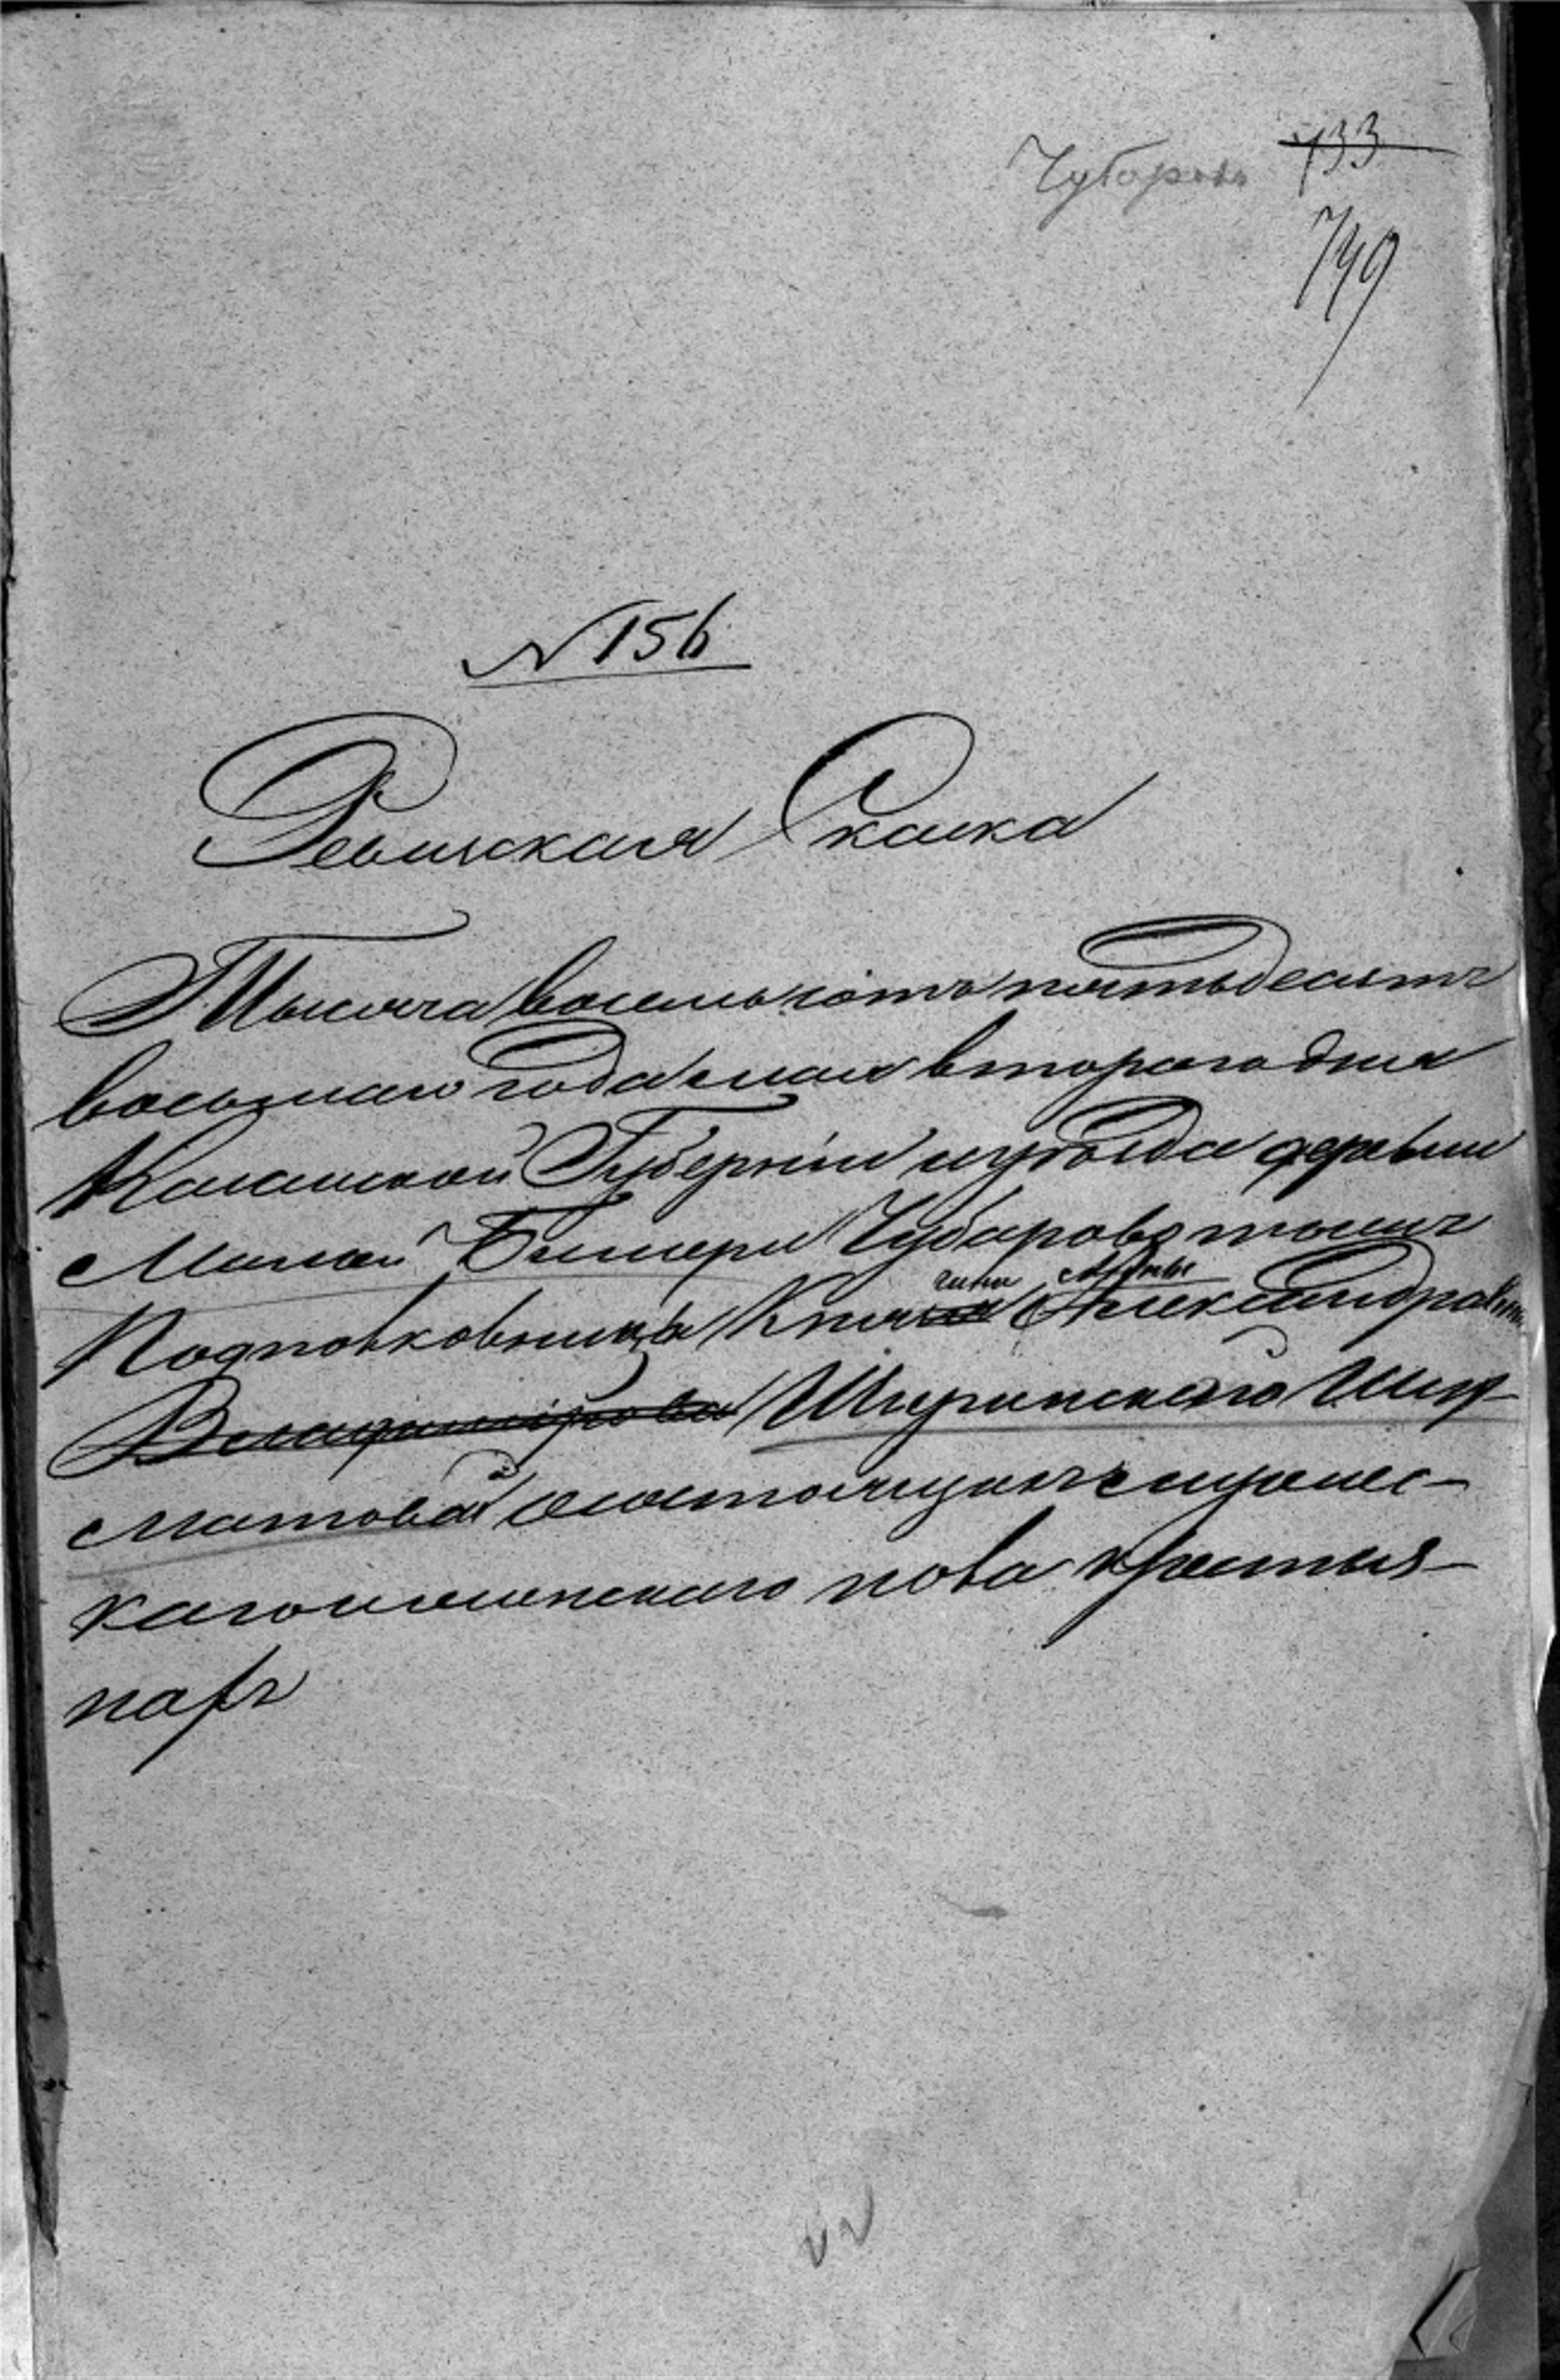 Чубаровъ 733
749
N 156
Ревизская Сказка
Тысяча восемь сотъ пятьдесятъ
восьмаго года мая втораго дня
Казанской Губерніи и уѣзда деревни
Малой Бимери Чубаровъ тожъ
гини
Подполковника Княз Александра
Владимірова Ширинскаго Ших-
матова о состоящихъ мужес-
каго и женскаго пола крестья-
нахъ